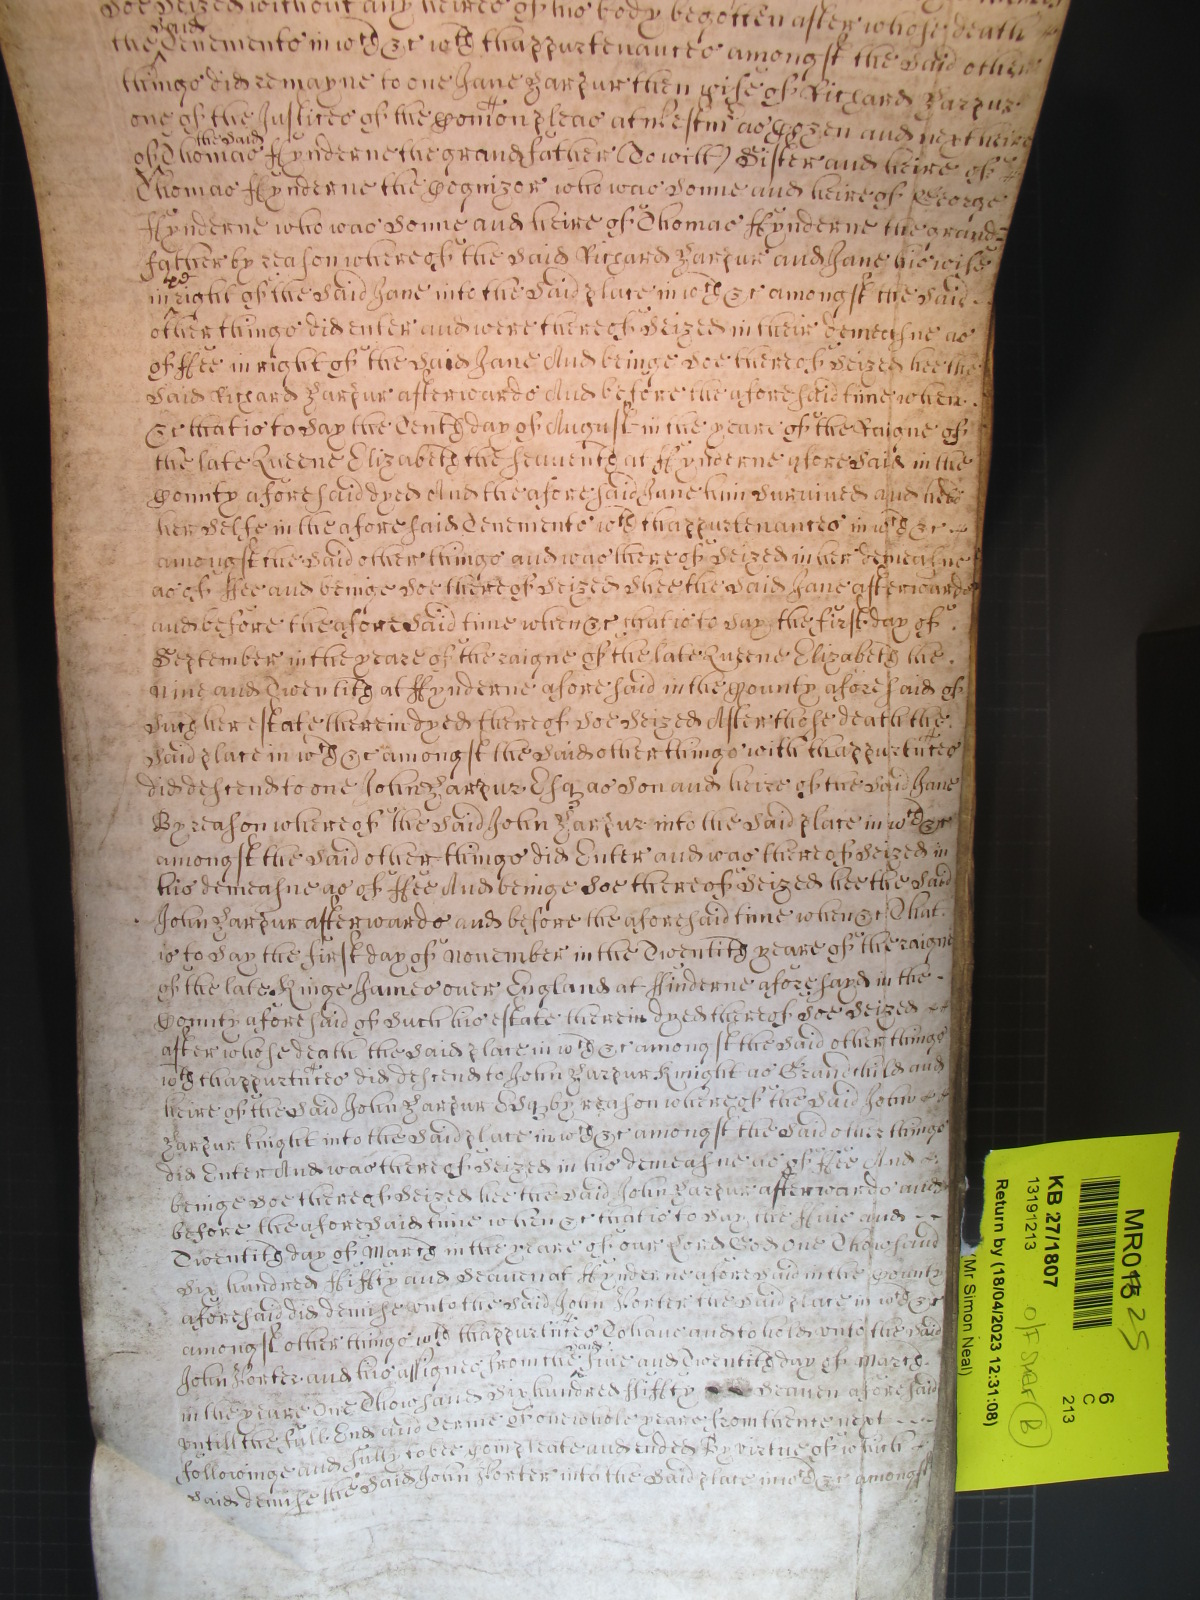 soe seized without any heires of his body begotten after whose death
the said Tenements in wch &c wth thappurtenances amongst the said other
things did remayne to one Jane Harpur then wife of Richard Harpur
one of the Justices of the Comon pleas at Westmr as Cozen and next heire
of the said Thomas Fynderne the grandfather (To witt) Sister and heire of
Thomas Fynderne the Cognizor who was sonne and heire of George
Fynderne who was sonne and heire of Thomas Fynderne the grand=
father by reason whereof the said Richard Harpur and Jane his wife
in right of the said Jane into the said place in wch &c amongst the said
other things did enter and were thereof seized in their demeasne as
of Fee in right of the said Jane And beinge soe thereof seized hee the
said Richard Harpur afterwards And before the aforesaid time when
&c that is to say the Tenth day of August in the yeare of the Raigne of
the late Queene Elizabeth the seaventh at Fynderne aforesaid in the
County aforesaid dyed And the aforesaid Jane him survived and held
her selfe in the aforesaid Tenements wth thappurtenances in wch &c
amongst the said other things and was thereof seized in her demeasne
as of Fee and beinge soe thereof seized shee the said Jane afterwards
and before the aforesaid time when &c that is to say the first day of
September in the yeare of the raigne of the late Queene Elizabeth the
Nine and Twentith at Fynderne aforesaid in the County aforesaid of
such her estate therein dyed thereof soe seized After those death the
said place in wch &c amongst the said other things with thappurtnces
did descend to one John Harpur Esq as son and heire of the said Jane
By reason whereof the said John Harpur into the said place in wch &c
amongst the said other things did Enter and was thereof seized in
his demeasne as of Fee And beinge soe thereof seized hee the said
John Harpur afterwards and before the aforesaid time when &c That
is to say the first day of November in the Twentith yeare of the raigne
of the late Kinge James over England at Finderne aforesayd in the
County aforesaid of such his estate therein dyed thereof soe seized
after whose death the said place in wch &c amongst the said other things
wth thappurtnces did descend to John Harpur Knight as Grandchild and
heire of the said John Harpur Esq by reason whereof the said John
Harpur knight into the said place in wch &c amongst the said other things
did Enter And was thereof seized in his demeasne as of Fee And
beinge soe thereof seized hee the said John Harpur afterwards and
before the aforesaid time when &c that is to say the Five and
Twentith day of March in the yeare of our Lord God One Thowsand
Six hundred Fiffty and Seaven at Fynderne aforesaid in the County
aforesaid did demise unto the said John Porter the said place in wch &c
amongst other things wth thappurtnces To have and to hold unto the said
John Porter and his assignes from the said Five and Twentith day of March
in the yeare One Thowsand Six hundred Fiffty Seaven aforesaid
untill the full End and Terme of one whole yeare from thence next
followinge and fully to bee compleate and ended By virtue of which
said demise the said John Porter into the said place in wch &c amongst
MR018 25
6
C
213
KB 27/1807
13191213
O/F SMAP (B)
Return by (18/04/2023 12:31:08)
(Mr Simon Neal)